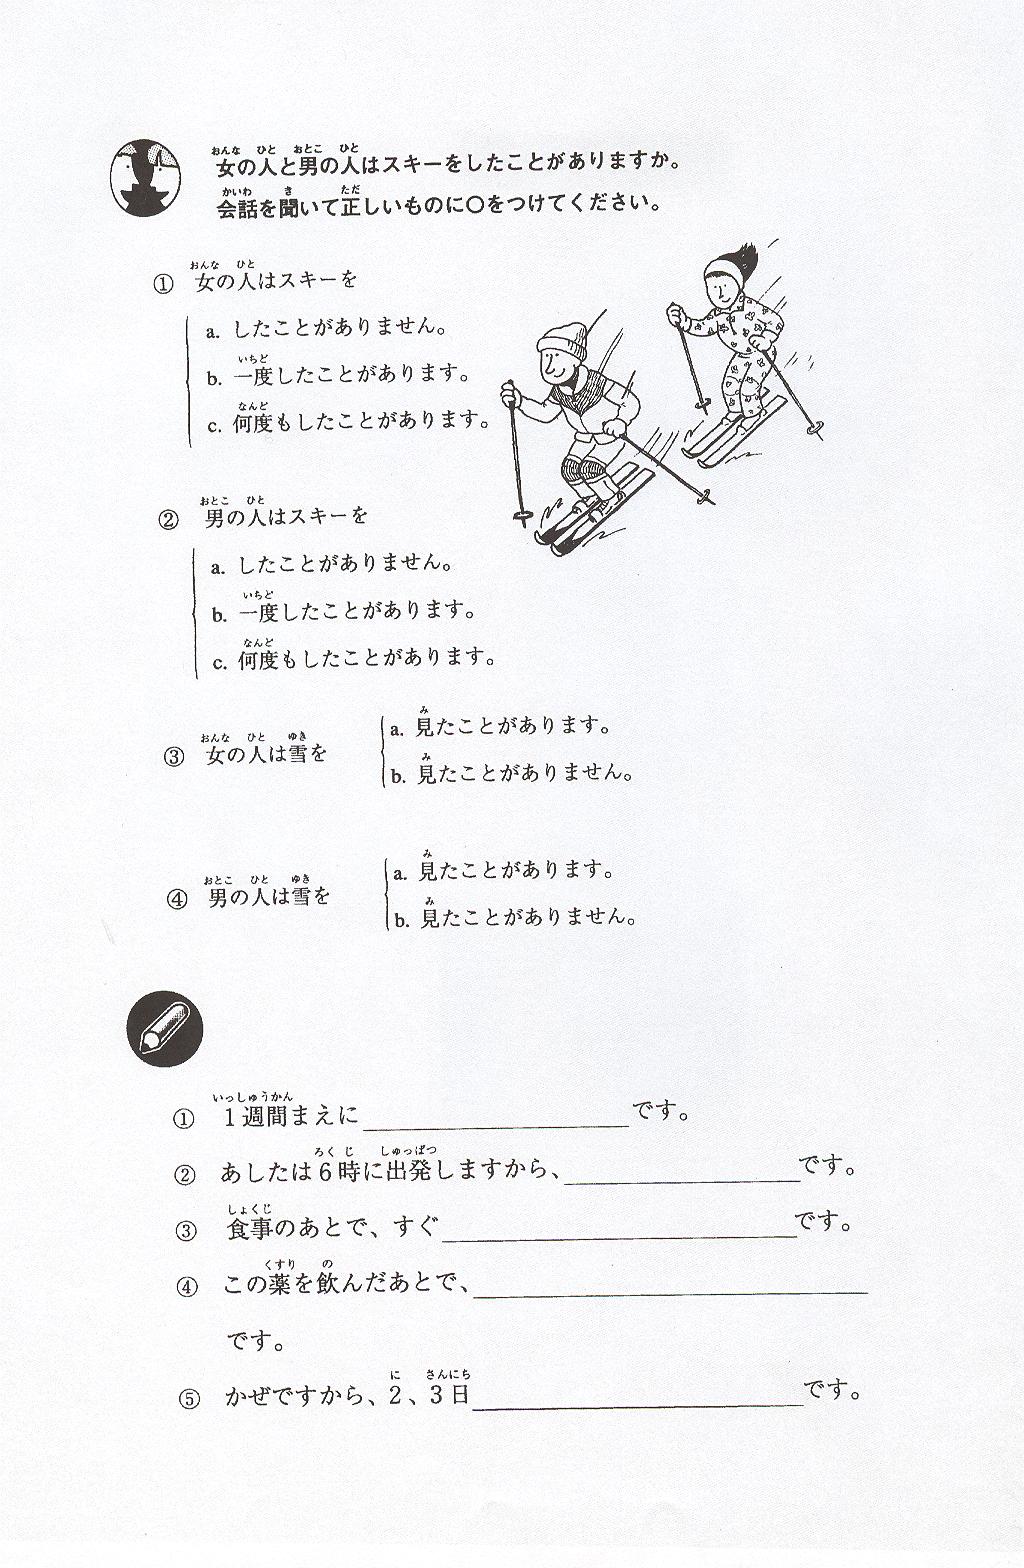 女の人と男の人はスキーをしたことがありますか。
会話を聞いて正しいものに○をつけてください。
① 女の人はスキーを
a. したことがありません。
b. 一度したことがあります。
c. 何度もしたことがあります。
② 男の人はスキーを
a. したことがありません。
b. 一度したことがあります。
c. 何度もしたことがあります。
③ 女の人は雪を
a. 見たことがあります。
b. 見たことがありません。
④ 男の人は雪を
a. 見たことがあります。
b. 見たことがありません。
① 1週間まえに____________です。
② あしたは6時に出発しますから、____________です。
③ 食事のあとで、すぐ____________です。
④ この薬を飲んだあとで、____________
です。
⑤ かぜですから、2、3日____________です。